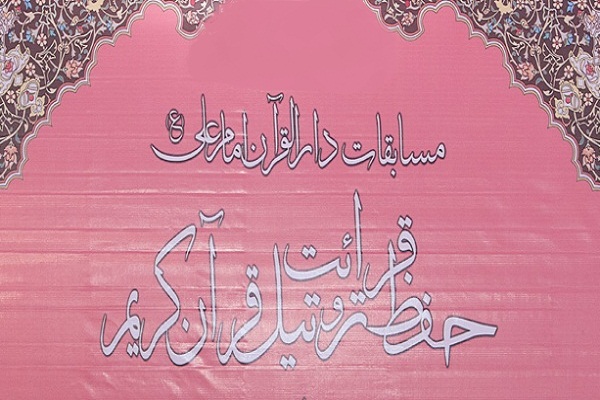 مسابقات دارالقرآن امام علی (ع)
قرائت
حفظ و ترتیل قرآن کریم